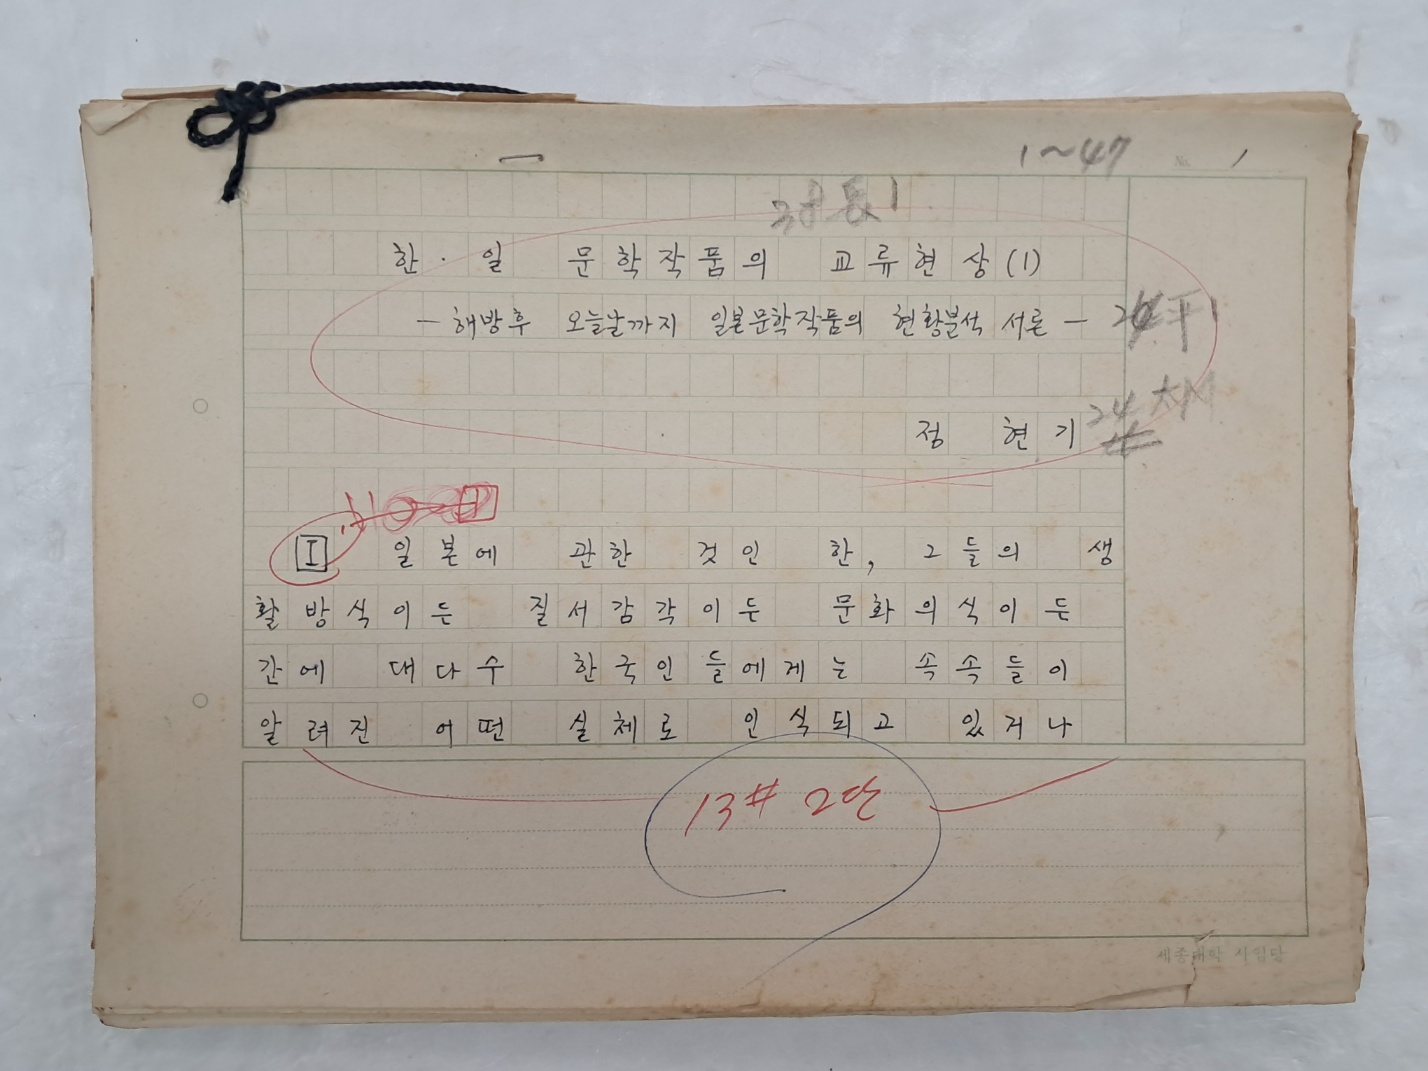 1~47
No. 1
한·일 문학작품의 교류현상(1)
— 해방후 오늘날까지 일본문학작품의 현황분석 서론 —
24
정 현 기
I 일본에 관한 것인 한, 그들의 생
활방식이든 질서감각이든 문화의식이든
간에 대다수 한국인들에게는 속속들이
알려진 어떤 실체로 인식되고 있거나
13# 2단
세종대학 시임당